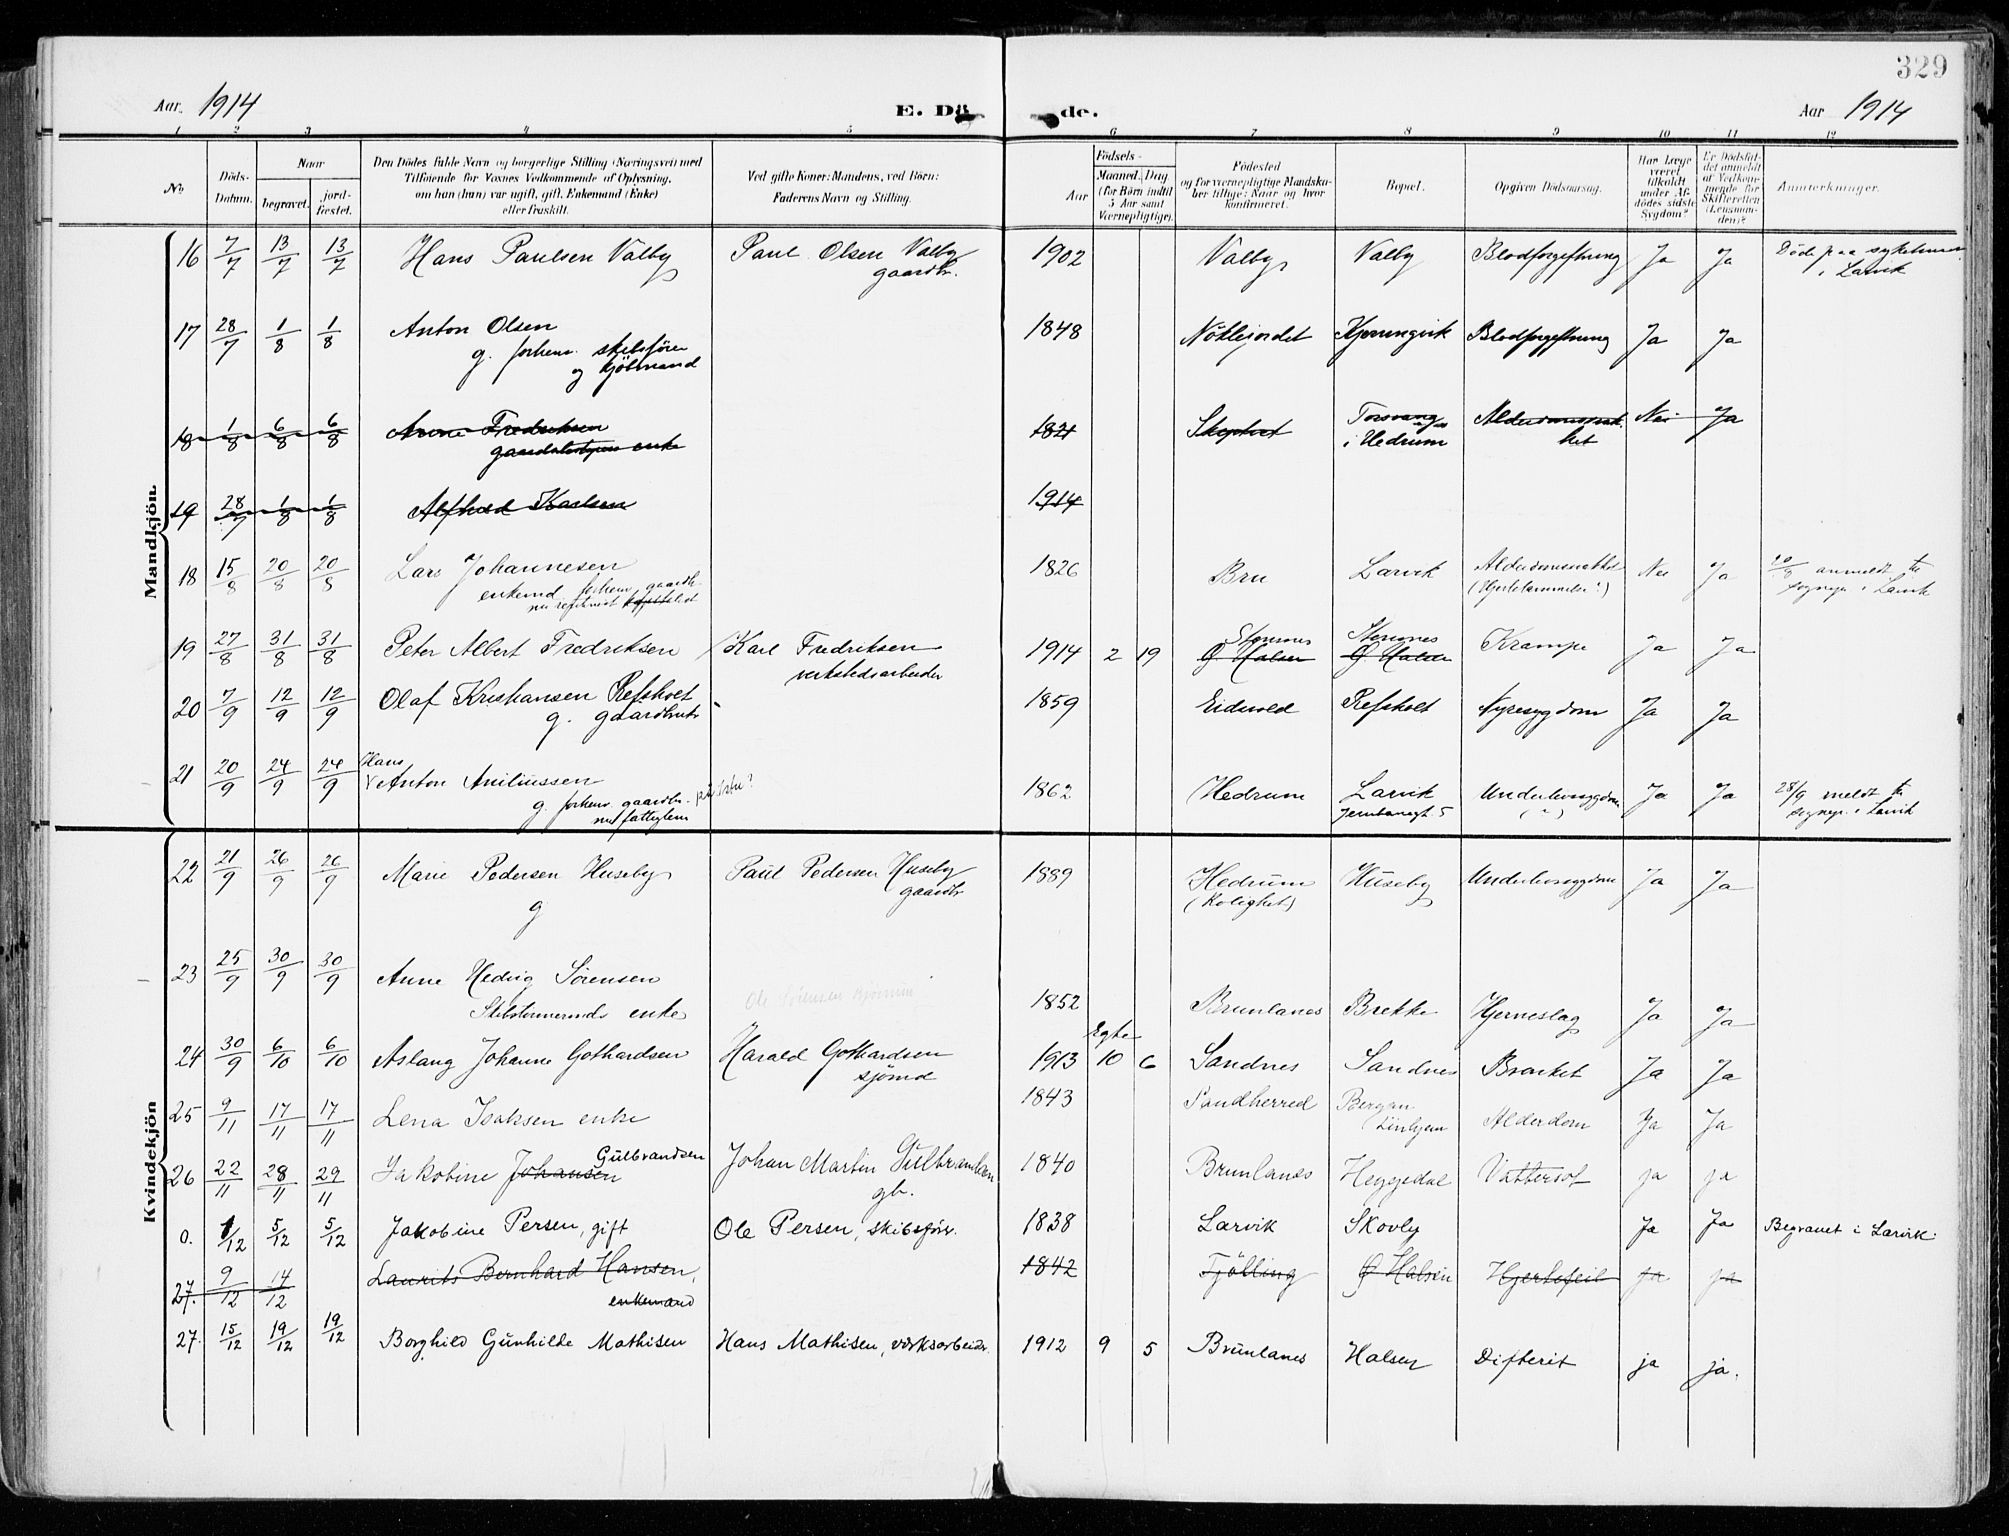 329
Aar 1914 E. Dö de. Aar 1914
1 2 3 4 5 6 7 8 9 10 11 12
No Döds-Datum. Naar begravet. jord-fæstet. Den Dödes fulde Navn og borgerlige Stilling (Næringsvei) med Tilföiende for Voxnes Vedkommende af Oplysning, om han (hun) var ugift, gift, Enkemand (Enke) eller fraskilt. Ved gifte Koner: Mandens, ved Börn: Faderens Navn og Stilling. Födsels- Aar Maaned. Dag (for Börn indtil 5 Aar samt Værnepligtige). Födested og for værnepligtige Mandskaber tillige: Naar og hvor konfirmeret. Bopæl. Opgiven Dödsaarsag. Har Læge været tilkaldt under Afdödes sidste Sygdom? Er Dödsfaldet anmeldt af Vedkommende for Skifteretten (Lensmanden)? Anmærkninger.
Mandkjön.
16 7/7 13/7 13/7 Hans Paulsen Valby Paul Olsen Valby gaardbr. 1902 Valby Valby Blodforgiftning Ja Ja Döde paa sykehuset i Larvik
17 28/7 1/8 1/8 Anton Olsen 1848 Nötlejordet Kjerringvik Blodforgiftning Ja Ja
g. forhenv. skibsförer
og kjöbmand
18 1/8 6/8 6/8 Anne Fredriksen 1821 i Hedrum Nei Ja
enke
19 28/7 1/8 1/8 Alfhild Karlsen 1914
18 15/8 20/8 20/8 Lars Johannesen 1826 Bru Larvik Alderdomssvakhet Nei Ja 20/8 anmeldt til
enkemd forhenv. gaardbr. (Hjertelammelse?) sognepr. i Larvik
19 27/8 31/8 31/8 Peter Albert Fredriksen Karl Fredriksen verkstedsarbeider 1914 2 19 Stennes Ø. Halsen Stennes Ø. Halsen Krampe Ja Ja
20 7/9 12/9 12/9 Olaf Kristiansen Refsholt 1859 Eidsvold Refsholt Nyresygdom Ja Ja
g. gaardbruker
21 20/9 24/9 24/9 Hans Anton Aniliussen 1862 Hedrum Larvik Underlivssygdom Ja Ja 28/9 meldt til
g. forhenv. gaardbr. Jernbanegt. 5 (?) sognepr. i Larvik
nu fattiglem
Kvindekjön
22 21/9 26/9 26/9 Marie Pedersen Huseby Paul Pedersen Huseby gaardbr 1889 Hedrum (Kolighet) Huseby Underlivssygdom Ja Ja
g
23 25/9 30/9 30/9 Anne Hedvig Sörensen
Skibstömmermds enke Ole Sörensen 1852 Brunlanes Brekke Hjerneslag Ja Ja
24 30/9 6/10 6/10 Aslaug Johanne Gothardsen Harald Gothardsen sjömd 1913 Egte 10 6 Sandnes Sandnes Brækket Ja Ja
25 9/11 17/11 17/11 Lena Isaksen enke 1843 Sandherred Bergan Alderdom Ja Ja
26 22/11 28/11 29/11 Jakobine Johansen Gulbrandsen Johan Martin Gulbrandsen gb. 1840 Brunlanes Heggedal Vattersot ja ja
0. 1/12 5/12 5/12 Jakobine Persen, gift Ole Persen, skibsför. 1838 Larvik Skovly Ja Ja Begravet i Larvik.
27. 9/12 14/12 Laurits Bernhard Hansen, enkemand 1842 Tjölling Ø Halsen Hjertefeil ja ja
27. 15/12 19/12 19/12 Borghild Gunhilde Mathisen Hans Mathisen, verksarbeider. 1912 9 5 Brunlanes Halsen Difterit ja ja.